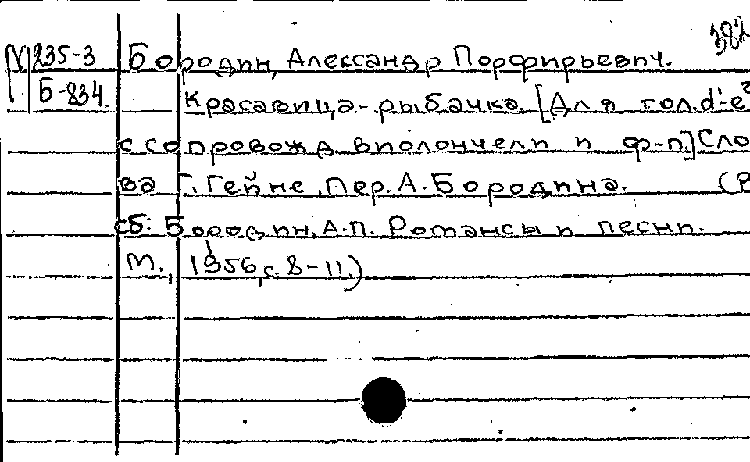 N 235-3 Бородин, Александр Порфирьевич. 382
Б-834. Красавица-рыбачка. [Для гол. d¹-e²
с сопровожд виолончели и ф-п] Сло
ва Г. Гейне, пер. А. Бородина. (В
сб: Бородин, А.П. Романсы и песни.
М., 1956, с. 8-11.)